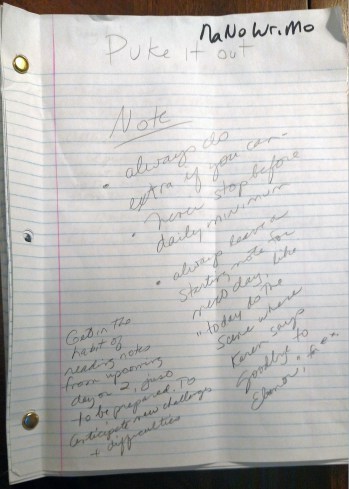 NaNoWriMo
Puke it out
Note
• always do
extra if you can -
• never stop before
daily minimum
• always leave a
starting note for
next day, like
"today do the
scene where
Karen says
Goodbye to
Eleanor,
Get in the
habit of
reading notes
from upcoming
day or 2, just
to be prepared. To
anticipate new challenges
+ difficulties